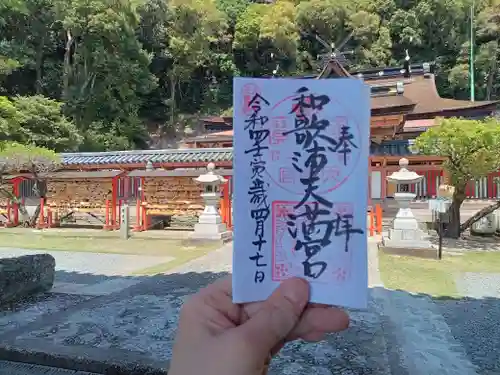 奉拝
和歌浦天満宮
令和四寅年四月十七日